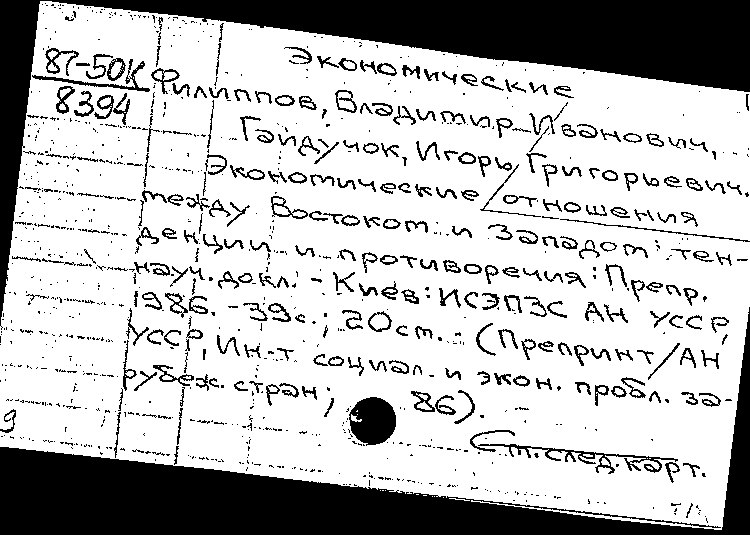 Экономические
87-50К
8394
Филиппов, Владимир Иванович,
Гайдучок, Игорь Григорьевич.
Экономические отношения
между Востоком и Западом: тен-
денции и противоречия: Препр.
науч. докл. - Киев: ИСЭПЗС АН УССР,
1986. - 39с.; 20см. - (Препринт/АН
УССР, Ин-т социал. и экон. пробл. за-
рубеж. стран; 86).
См. след. карт.
9